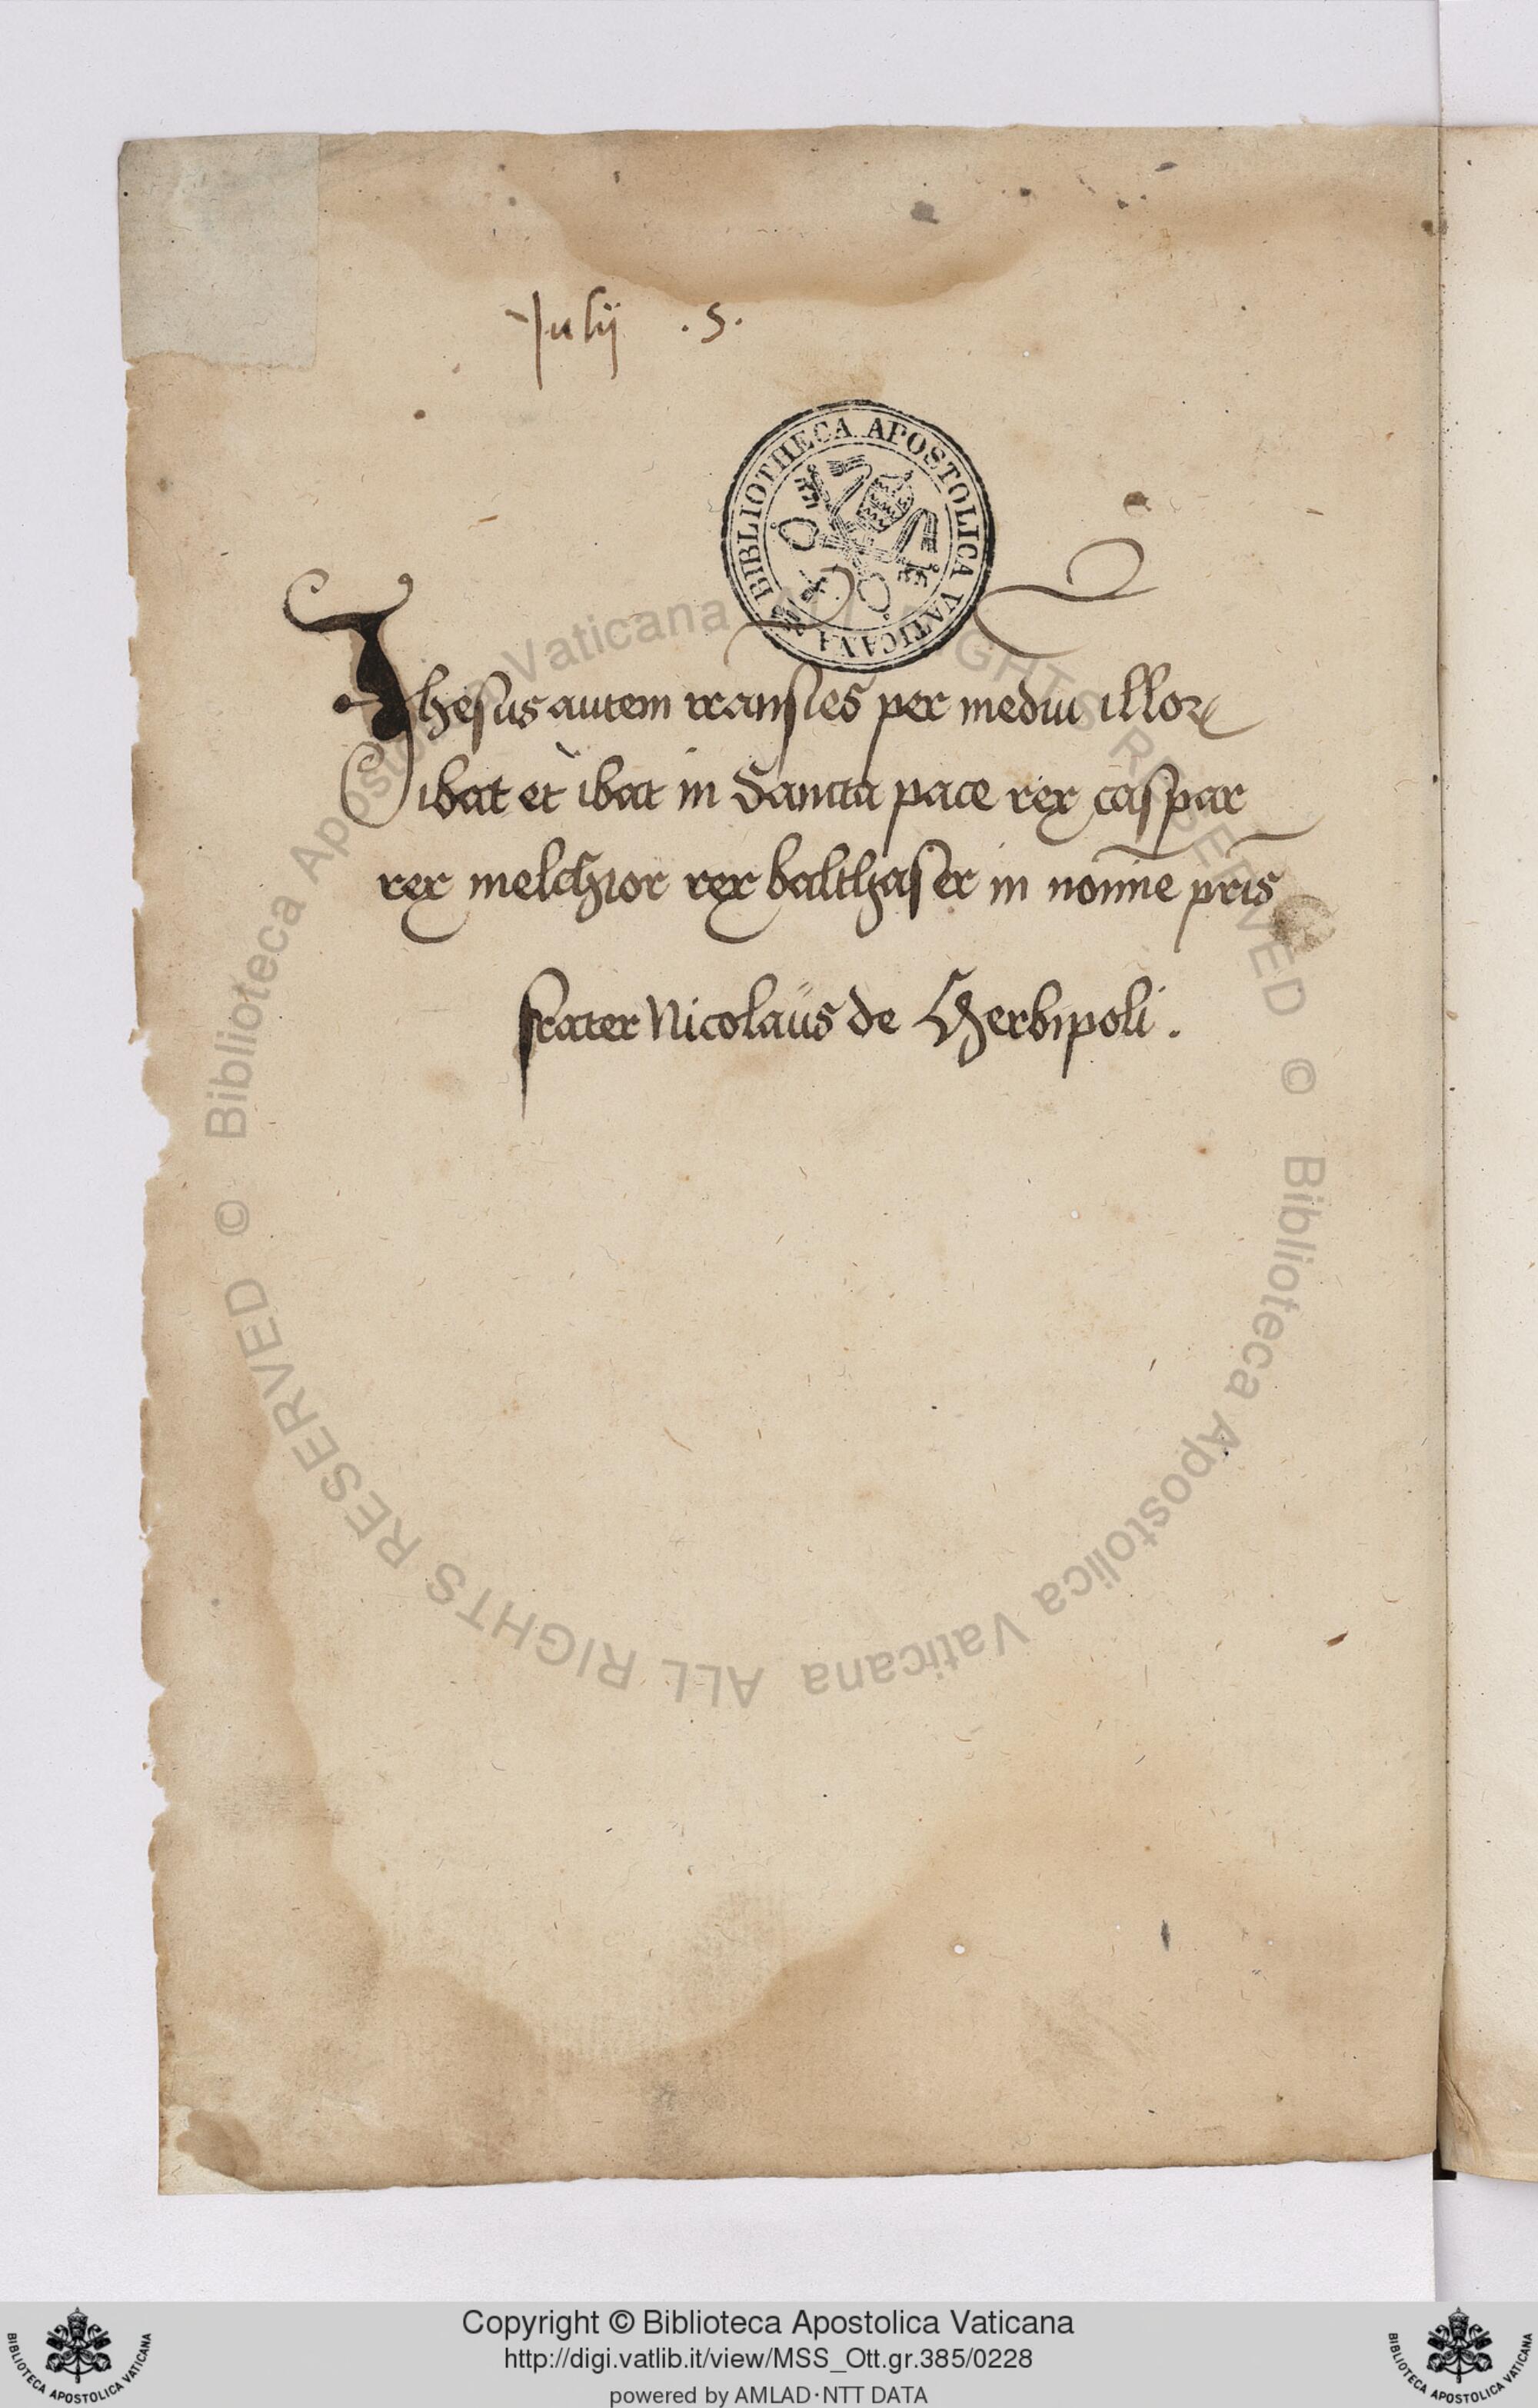 Julij .5.
BIBLIOTHECA APOSTOLICA VATICANA
Jhesus autem transies per mediu illoꝝ
ibat et ibat in Sancta pace rex caspar
rex melchior rex balthaser in noĩe pris̃
frater Nicolaus de Herbipoli .
© Biblioteca Apostolica Vaticana ALL RIGHTS RESERVED © Biblioteca Apostolica Vaticana ALL RIGHTS RESERVED
Copyright © Biblioteca Apostolica Vaticana
http://digi.vatlib.it/view/MSS_Ott.gr.385/0228
powered by AMLAD·NTT DATA
BIBLIOTECA APOSTOLICA VATICANA
BIBLIOTECA APOSTOLICA VATICANA